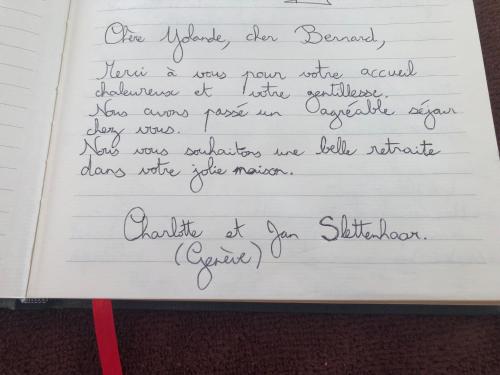 Chère Yolande, cher Bernard,
Merci à vous pour votre accueil
chaleureux et votre gentillesse.
Nous avons passé un agréable séjour
chez vous.
Nous vous souhaitons une belle retraite
dans votre jolie maison.
Charlotte et Jan Slettenhaar.
(Genève)